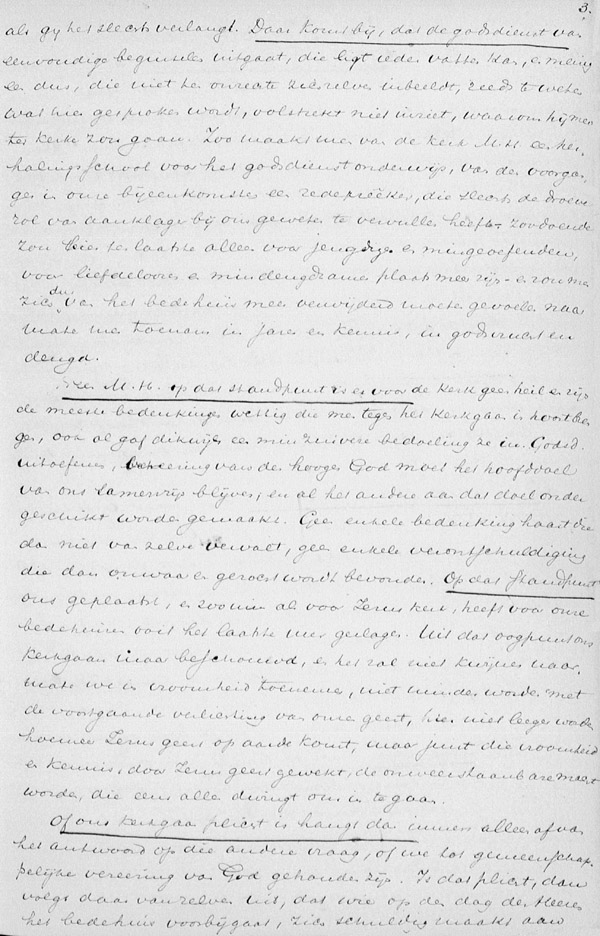 3.
als gy het slechts verlangt. Daar komt bij, dat de godsdienst van
eenvoudige beginselen uitgaat, die ligt ieder vatten kan, en menig
een dus, die niet ten onrechte zich zelven inbeeldt, reeds te weten
wat hier gesproken wordt, volstrekt niet inziet, waarom hij meer
ter kerke zou gaan. Zoo maakt men van de kerk M. H. een her-
halingsschool voor het godsdienstonderwijs, van den voorgan-
ger in onze bijeenkomsten een redeprediker, die slechts de droeve
rol van aanklager bij ons geweten te vervullen heeft zoodoende
zou hier ten laatste alleen voor jeugdigen en mingeoefenden,
voor liefdeloozen en mindeugdzamen plaats meer zijn en zou men
zich dus van het bedehuis meer verwijderd moeten gevoelen naar
mate men toenam in jaren en kennis, in godsvrucht en
deugd.
Neen M. H. op dat standpunt is er voor de kerk geen heil en zijn
de meeste bedenkingen wettig die men tegen het kerkgaan hoort inbren-
gen, ook al gaf dikwijls een min zuivere bedoeling ze in. Godsd.
uitoefenen, vereering van den hoogen God moet het hoofddoel
van ons samenzijn blijven, en al het andere aan dat doel onder
geschikt worden gemaakt. Geen enkele bedenking haast die
dan niet van zelve vervalt, geen enkele verontschuldiging
die dan onwaar en gezocht wordt bevonden. Op dat standpunt
ons geplaatst, en zoomin als voor Jezus kerk, heeft voor onze
bedehuizen ooit het laatste uur geslagen. Uit dat oogpunt ons
kerkgaan maar beschouwd, en het zal niet kwijnen naar
mate we in vroomheid toenemen, niet minder worden met
de voortgaande verlichting van onze geest, hier niet leeger worden
hoemeer Jezus geest op aarde komt, maar juist die vroomheid
en kennis, door Jezus geest gewekt, de onweerstaanbare macht
worden, die eens allen dwingt om in te gaan.
Of ons kerkgaan plicht is hangt dan immers alleen af van
het antwoord op die andere vraag, of we tot gemeenschap-
pelijke vereering van God gehouden zijn. Is dat plicht, dan
volgt daar vanzelven uit, dat wie op den dag des Heeren
het bedehuis voorbijgaat, zich schuldig maakt aan